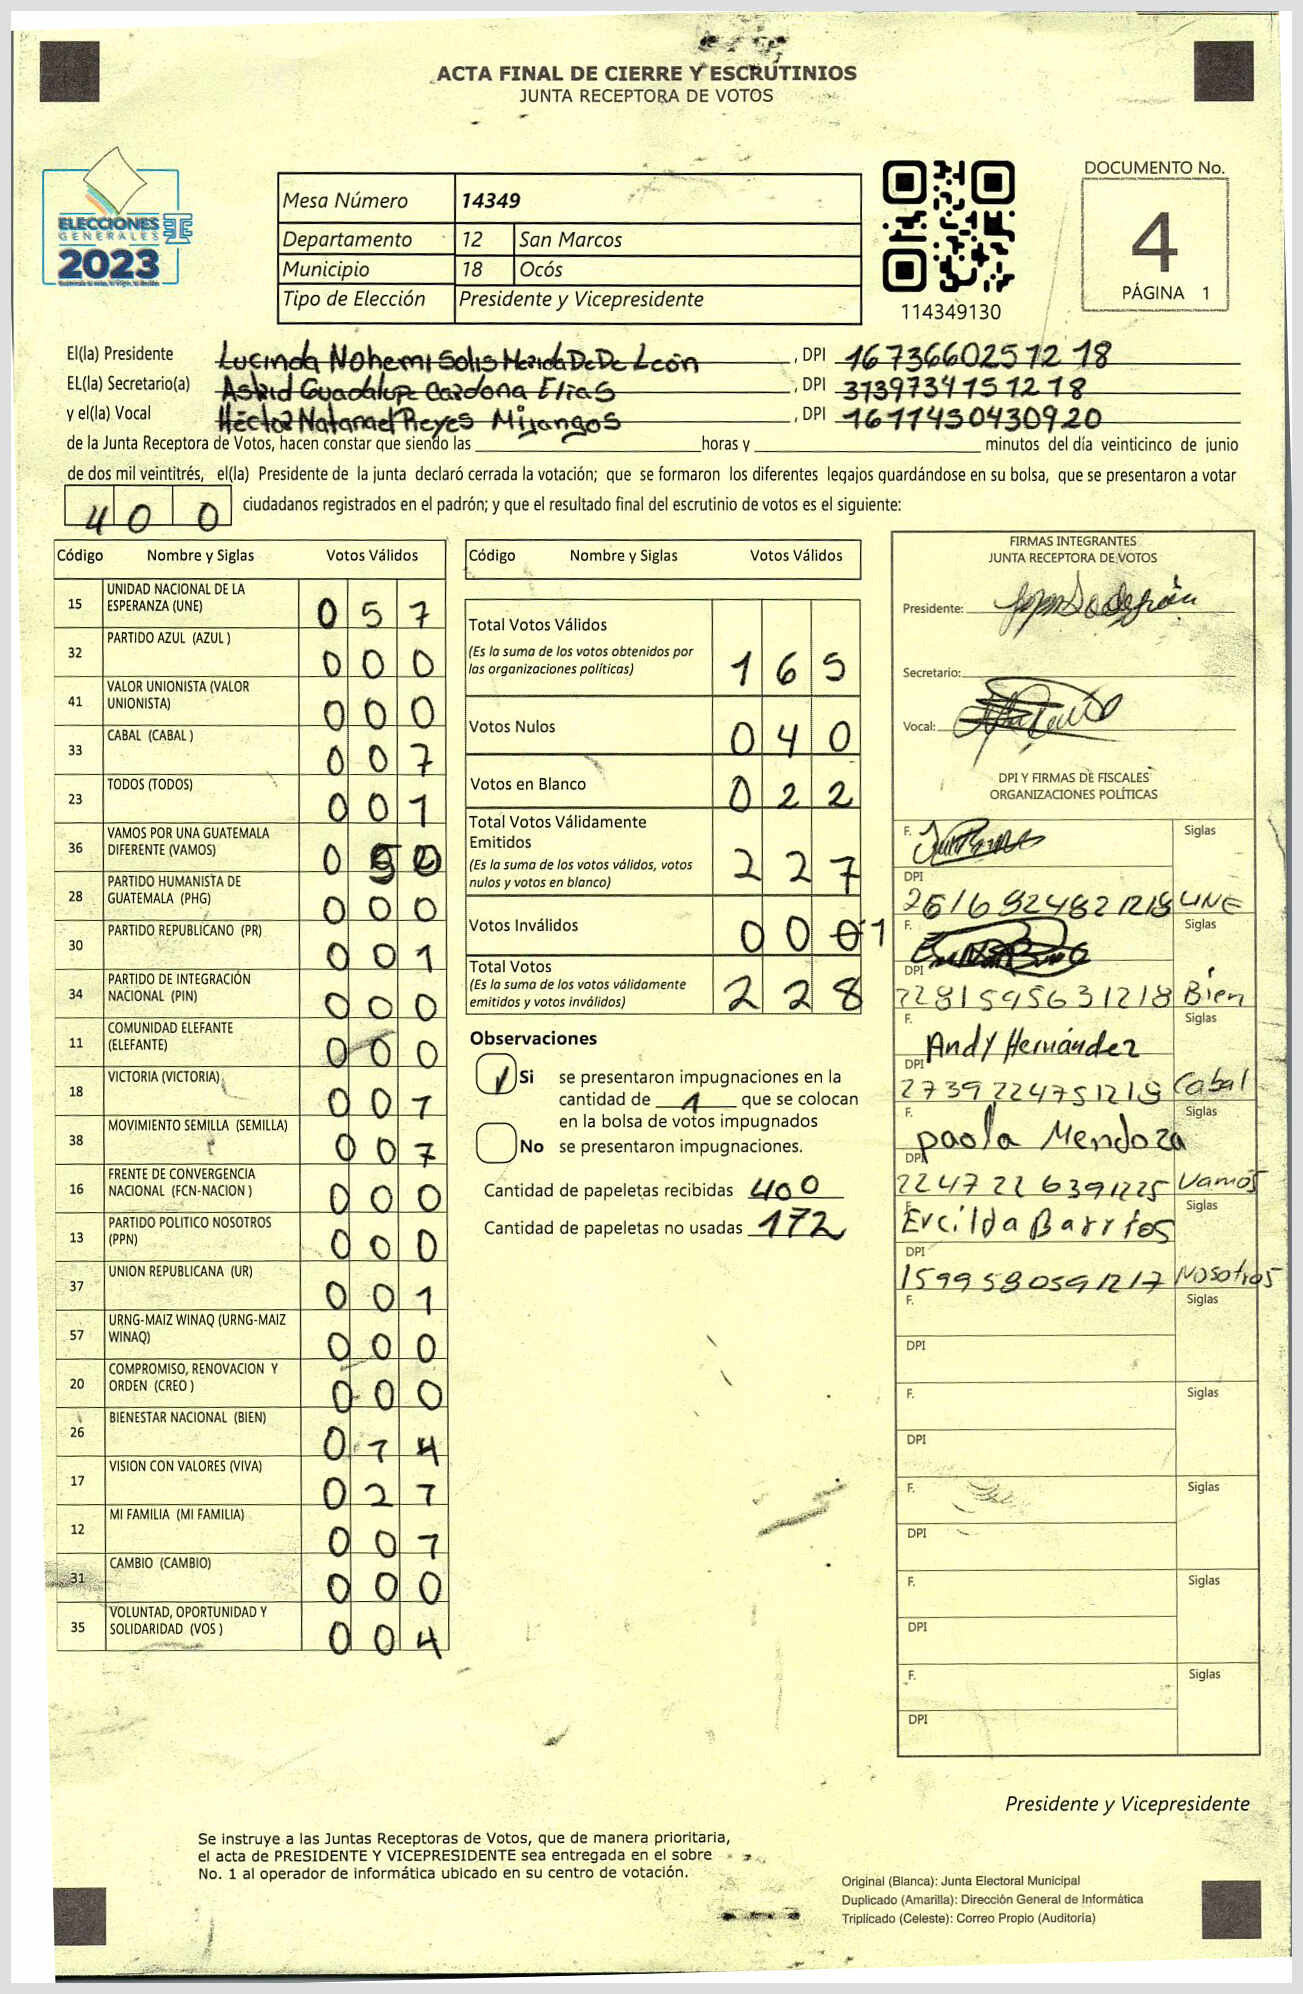 ACTA FINAL DE CIERRE Y ESCRUTINIOS
JUNTA RECEPTORA DE VOTOS
ELECCIONES
GENERALES
2023
Mesa Número 14349
Departamento 12 San Marcos
Municipio 18 Ocós
Tipo de Elección Presidente y Vicepresidente
114349130
DOCUMENTO No.
4
PÁGINA 1
El(la) Presidente Lucinda Nohemi Solis Merida De De León , DPI 1673660251218
EL(la) Secretario(a) Astrid Guadalupe Cardona Elias , DPI 3139734151218
y el(la) Vocal Héctor Natanael Reyes Mijangos , DPI 1611450430920
de la Junta Receptora de Votos, hacen constar que siendo las horas y minutos del día veinticinco de junio
de dos mil veintitrés, el(la) Presidente de la junta declaró cerrada la votación; que se formaron los diferentes legajos guardándose en su bolsa, que se presentaron a votar
400 ciudadanos registrados en el padrón; y que el resultado final del escrutinio de votos es el siguiente:
Código Nombre y Siglas Votos Válidos
15 UNIDAD NACIONAL DE LA
ESPERANZA (UNE) 0 5 7
32 PARTIDO AZUL (AZUL ) 0 0 0
41 VALOR UNIONISTA (VALOR
UNIONISTA) 0 0 0
33 CABAL (CABAL ) 0 0 7
23 TODOS (TODOS) 0 0 1
36 VAMOS POR UNA GUATEMALA
DIFERENTE (VAMOS) 0
28 PARTIDO HUMANISTA DE
GUATEMALA (PHG) 0 0 0
30 PARTIDO REPUBLICANO (PR) 0 0 1
34 PARTIDO DE INTEGRACIÓN
NACIONAL (PIN) 0 0 0
11 COMUNIDAD ELEFANTE
(ELEFANTE) 0 0 0
18 VICTORIA (VICTORIA) 0 0 1
38 MOVIMIENTO SEMILLA (SEMILLA) 0 0 7
16 FRENTE DE CONVERGENCIA
NACIONAL (FCN-NACION ) 0 0 0
13 PARTIDO POLITICO NOSOTROS
(PPN) 0 0 0
37 UNION REPUBLICANA (UR) 0 0 1
57 URNG-MAIZ WINAQ (URNG-MAIZ
WINAQ) 0 0 0
20 COMPROMISO, RENOVACION Y
ORDEN (CREO ) 0 0 0
26 BIENESTAR NACIONAL (BIEN) 0 1 4
17 VISION CON VALORES (VIVA) 0 2 7
12 MI FAMILIA (MI FAMILIA) 0 0 7
31 CAMBIO (CAMBIO) 0 0 0
35 VOLUNTAD, OPORTUNIDAD Y
SOLIDARIDAD (VOS ) 0 0 4
Código Nombre y Siglas Votos Válidos
Total Votos Válidos
(Es la suma de los votos obtenidos por
las organizaciones políticas) 1 6 5
Votos Nulos 0 4 0
Votos en Blanco 0 2 2
Total Votos Válidamente
Emitidos
(Es la suma de los votos válidos, votos
nulos y votos en blanco) 2 2 7
Votos Inválidos 0 0 0 1
Total Votos
(Es la suma de los votos válidamente
emitidos y votos inválidos) 2 2 8
Observaciones
Si se presentaron impugnaciones en la
cantidad de 1 que se colocan
en la bolsa de votos impugnados
No se presentaron impugnaciones.
Cantidad de papeletas recibidas 400
Cantidad de papeletas no usadas 172
FIRMAS INTEGRANTES
JUNTA RECEPTORA DE VOTOS
Presidente:
Secretario:
Vocal:
DPI Y FIRMAS DE FISCALES
ORGANIZACIONES POLÍTICAS
F. Siglas
DPI
2616924821218 UNE
F. Siglas
DPI
2281595631218 Bien
F. Siglas
Andy Hernández
DPI
2739224751218 Cabal
F. Siglas
paola Mendoza
DPI
2247226391225 Vamos
F. Siglas
Ercilda Barrios
DPI
1599580591217 Nosotros
F. Siglas
DPI
F. Siglas
DPI
F. Siglas
DPI
F. Siglas
DPI
F. Siglas
DPI
Presidente y Vicepresidente
Se instruye a las Juntas Receptoras de Votos, que de manera prioritaria,
el acta de PRESIDENTE Y VICEPRESIDENTE sea entregada en el sobre
No. 1 al operador de informática ubicado en su centro de votación.
Original (Blanca): Junta Electoral Municipal
Duplicado (Amarilla): Dirección General de Informática
Triplicado (Celeste): Correo Propio (Auditoría)